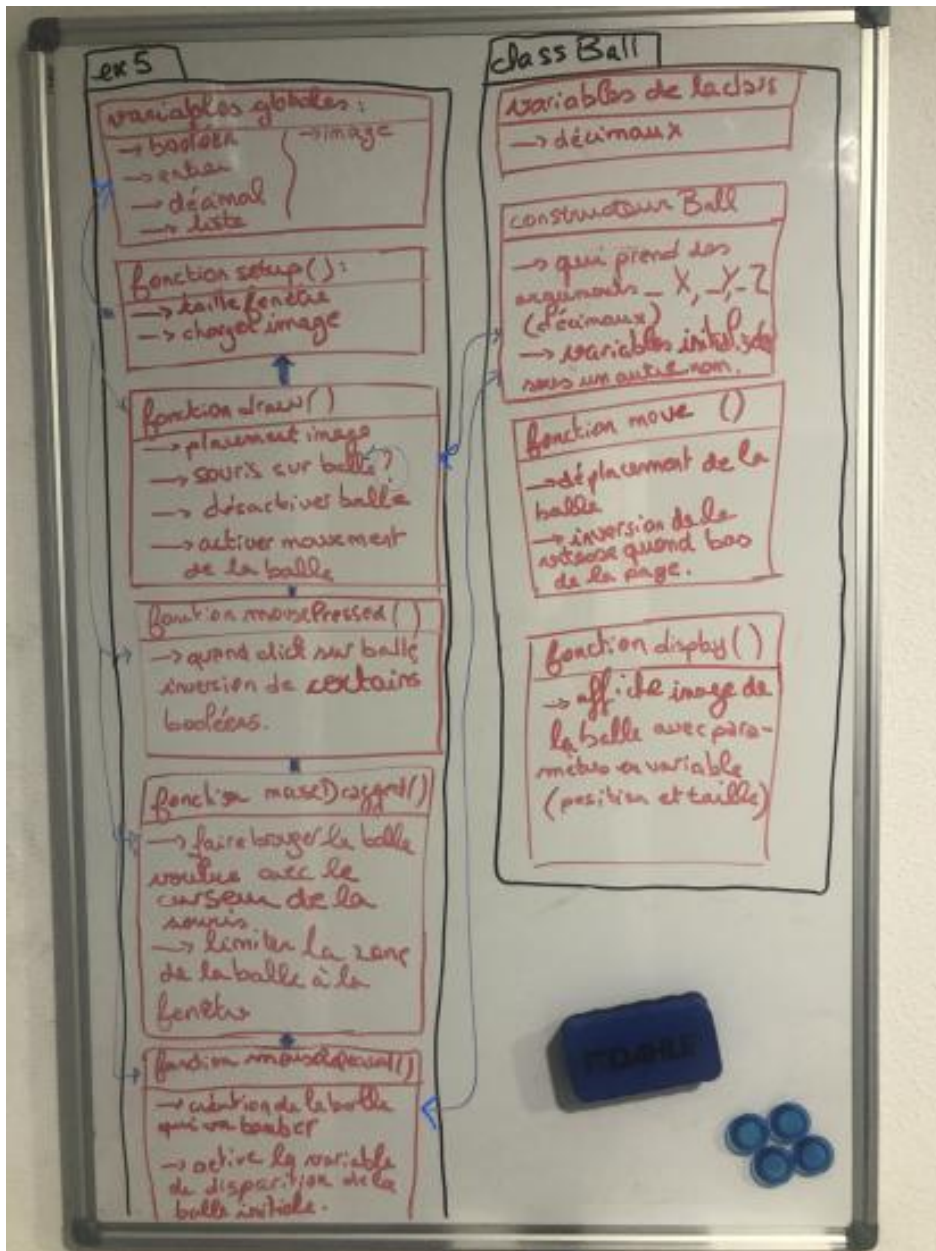 ex 5
variables globales :
→ booléen
→ entier
→ décimal
→ liste
→ image
fonction setup() :
→ taille fenêtre
→ charger image
fonction draw()
→ placement image
→ souris sur balle ?
→ désactiver balle
→ activer mouvement
de la balle
fonction mousePressed()
→ quand click sur balle
inversion de certains
booléens.
fonction mouseDragged()
→ faire bouger la balle
voulue avec le
curseur de la
souris
→ limiter la zone
de la balle à la
fenêtre
fonction
→ création de la balle
qui va tomber
→ active la variable
de disparition de la
balle initiale.
class Ball
variables de la class
→ décimaux
constructeur Ball
→ qui prend des
arguments _X, _Y, _Z
(décimaux)
→ variables
sous un autre nom.
fonction move ()
→ déplacement de la
balle
→ inversion de la
vitesse quand bas
de la page.
fonction display()
→ affiche image de
la balle avec para-
mètres en variable
(position et taille)
DAHLE